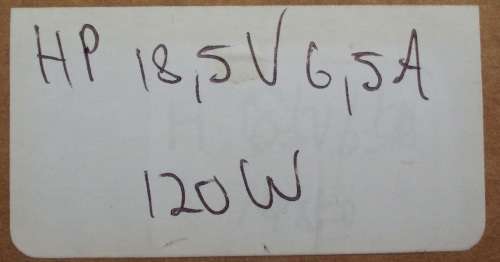 HP 18,5V 6,5A
120W